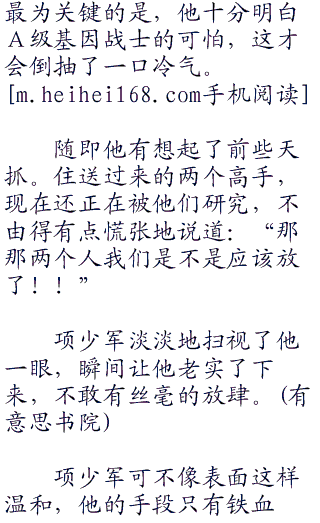 最为关键的是，他十分明白
Ａ级基因战士的可怕，这才
会倒抽了一口冷气。
[m.heihei168.com手机阅读]
随即他有想起了前些天
抓。住送过来的两个高手，
现在还正在被他们研究，不
由得有点慌张地说道：“那
那两个人我们是不是应该放
了！！”
项少军淡淡地扫视了他
一眼，瞬间让他老实了下
来，不敢有丝毫的放肆。(有
意思书院)
项少军可不像表面这样
温和，他的手段只有铁血